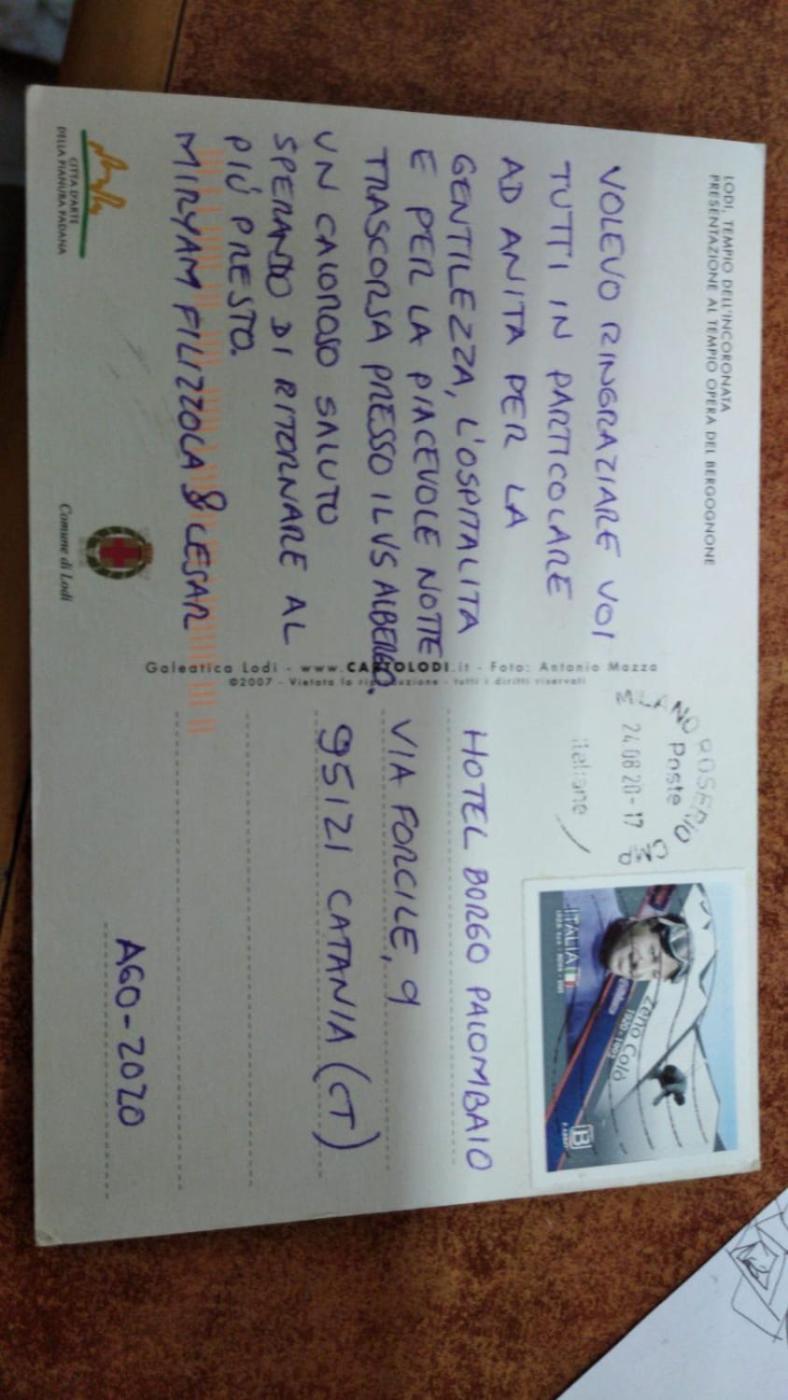 LODI, TEMPIO DELL'INCORONATA
PRESENTAZIONE AL TEMPIO OPERA DEL BERGOGNONE
VOLEVO RINGRAZIARE VOI
TUTTI IN PARTICOLARE
AD ANITA PER LA
GENTILEZZA, L'OSPITALITA
E PER LA PIACEVOLE NOTTE
TRASCORSA PRESSO IL VS ALBERGO.
UN CALOROSO SALUTO
SPERANDO DI RITORNARE AL
PIÚ PRESTO.
MIRYAM FILIZZOLA & CESAR
CITTÀ D'ARTE
DELLA PIANURA PADANA
Comune di Lodi
Galeatica Lodi - www.CARTOLODI.it - Foto: Antonio Mazza
©2007 - Vietata la riproduzione - tutti i diritti riservati
MILANO ROSERIO CMP
Poste
24 08 20-17
italiane
Zeno Colò
1920-1993
ITALIA
B
HOTEL BORGO PALOMBAIO
VIA FORCILE, 9
95121 CATANIA (CT)
AGO-2020